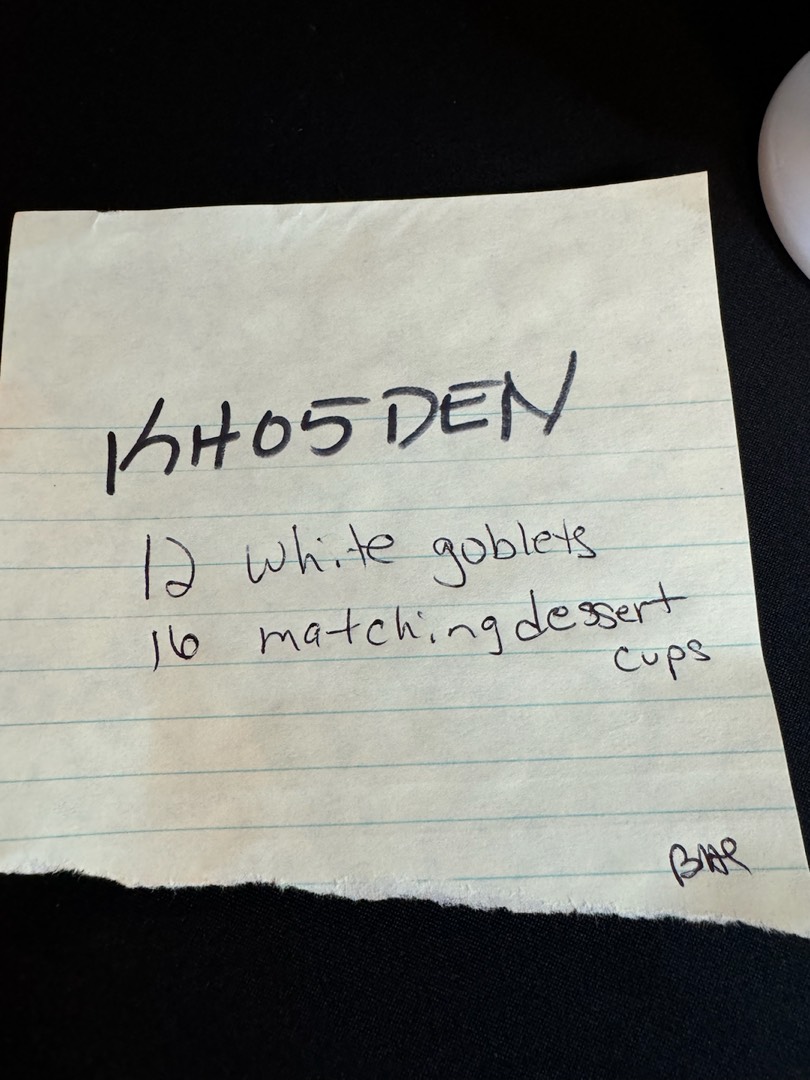 KH05DEN
12 white goblets
16 matching dessert
cups